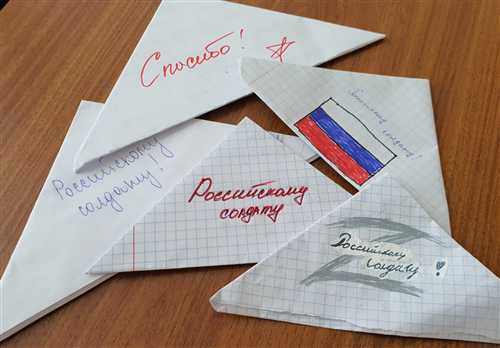 Спасибо!
Российскому
солдату!
Российскому солдату!
Российскому
солдату
Российскому
солдату!